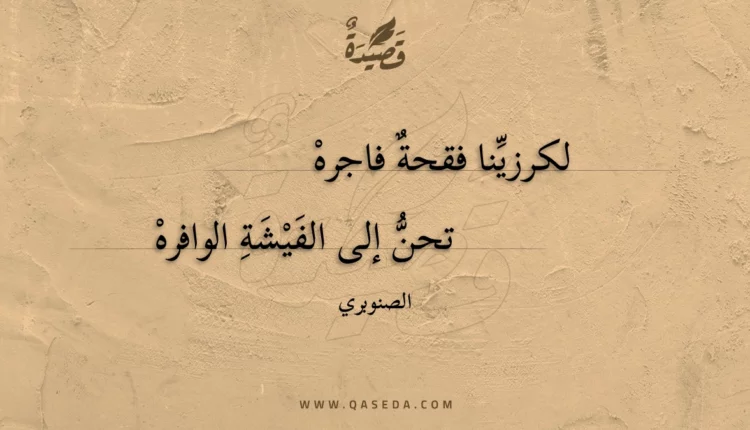 قَصِيْدَةٌ
لكرزيِّنا فقحةٌ فاجرهْ
تحنُّ إلى الفَيْشَةِ الوافرهْ
الصنوبري
WWW.QASEDA.COM